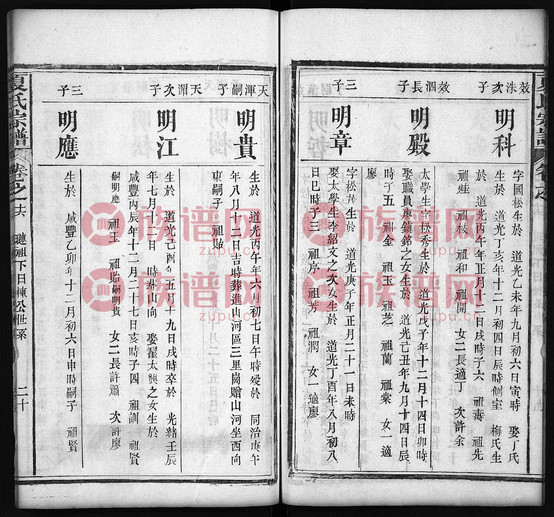 夏氏宗譜
效洙次子
明科
字國松生於 道光乙未年九月初六日寅時 娶丁氏
生於 道光丁亥年十二月初四日辰時 側室 梅氏生
於道光丙午年正月十二日戌時子六 祖壽 祖先
祖桂 祖核 祖和 祖開 女二長適丁 次許余
效泗長子
明殿
太學生字松秀生於 道光戊子年十二月十四日卯時
娶職員庚鎮銘之女生於 道光己丑年九月十四日辰
時子五 祖金 祖玉 祖芝 祖蘭 祖棠 女一適
三子
明章
字松 生於 道光庚子年正月二十一日未時
娶太學生李紹文之次女生於 道光丁酉年八月初八
日巳時子三 祖序 祖芳 祖潤 女一適廖
天渾嗣子
明貴
生於 道光丙午年六月初七日午時歿於 同治庚午
年八月十二日吉時葬進山河區三里崗贍山河坐西向
東嗣子 祖貽
天渭次子
明江
生於 道光己酉年五月十九日戌時卒於 光緒壬辰
年七月十二日 時 山向 娶翟太興之女生於
咸豐丙辰年十二月二十七日亥時子四 祖訓 祖賢
嗣明應 祖玉 祖貽嗣明貴 女二長許蕭 次許廖
三子
明應
生於 咸豐乙卯年十二月初六日申時嗣子 祖賢
夏氏宗譜
卷之六
璉祖下日棟公世系
二十
族谱网
zupu.cn